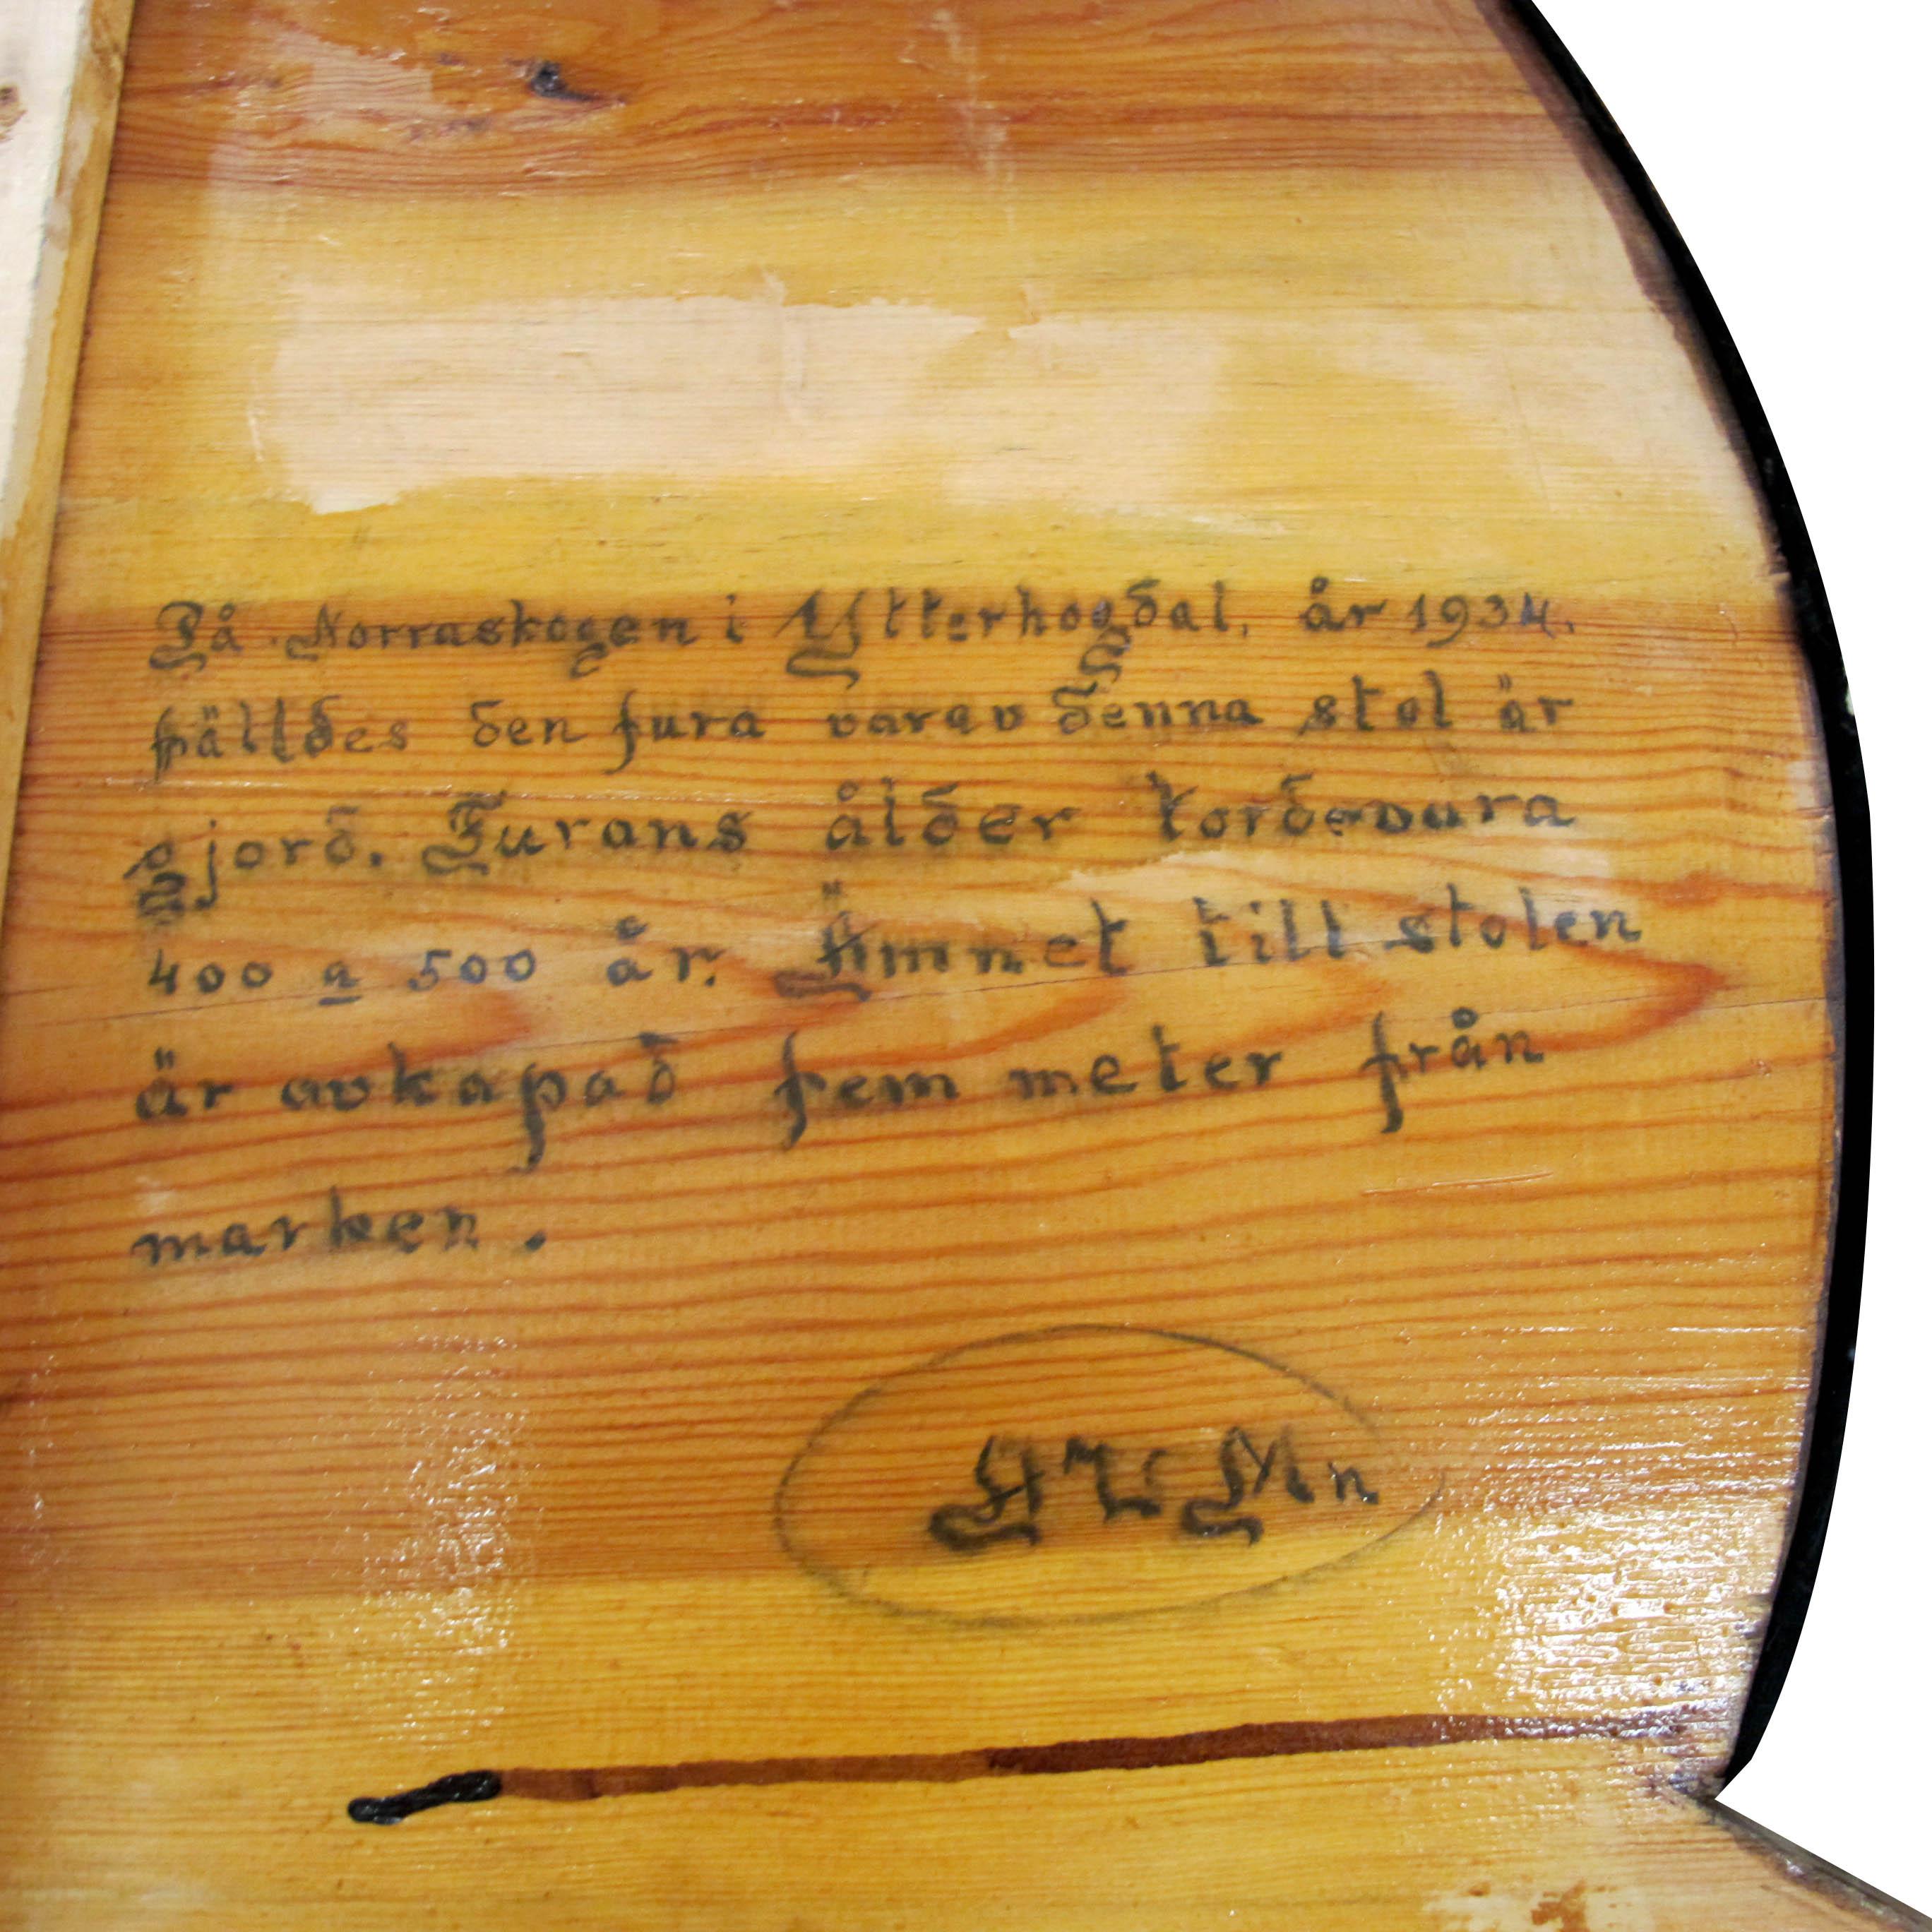 På Norraskogen i Ytterhogdal, år 1934.
fälldes den fura varav denna stol är
gjord. Furans ålder tordevara
400 a 500 år. Ämnet till stolen
är avkapad fem meter från
marken.